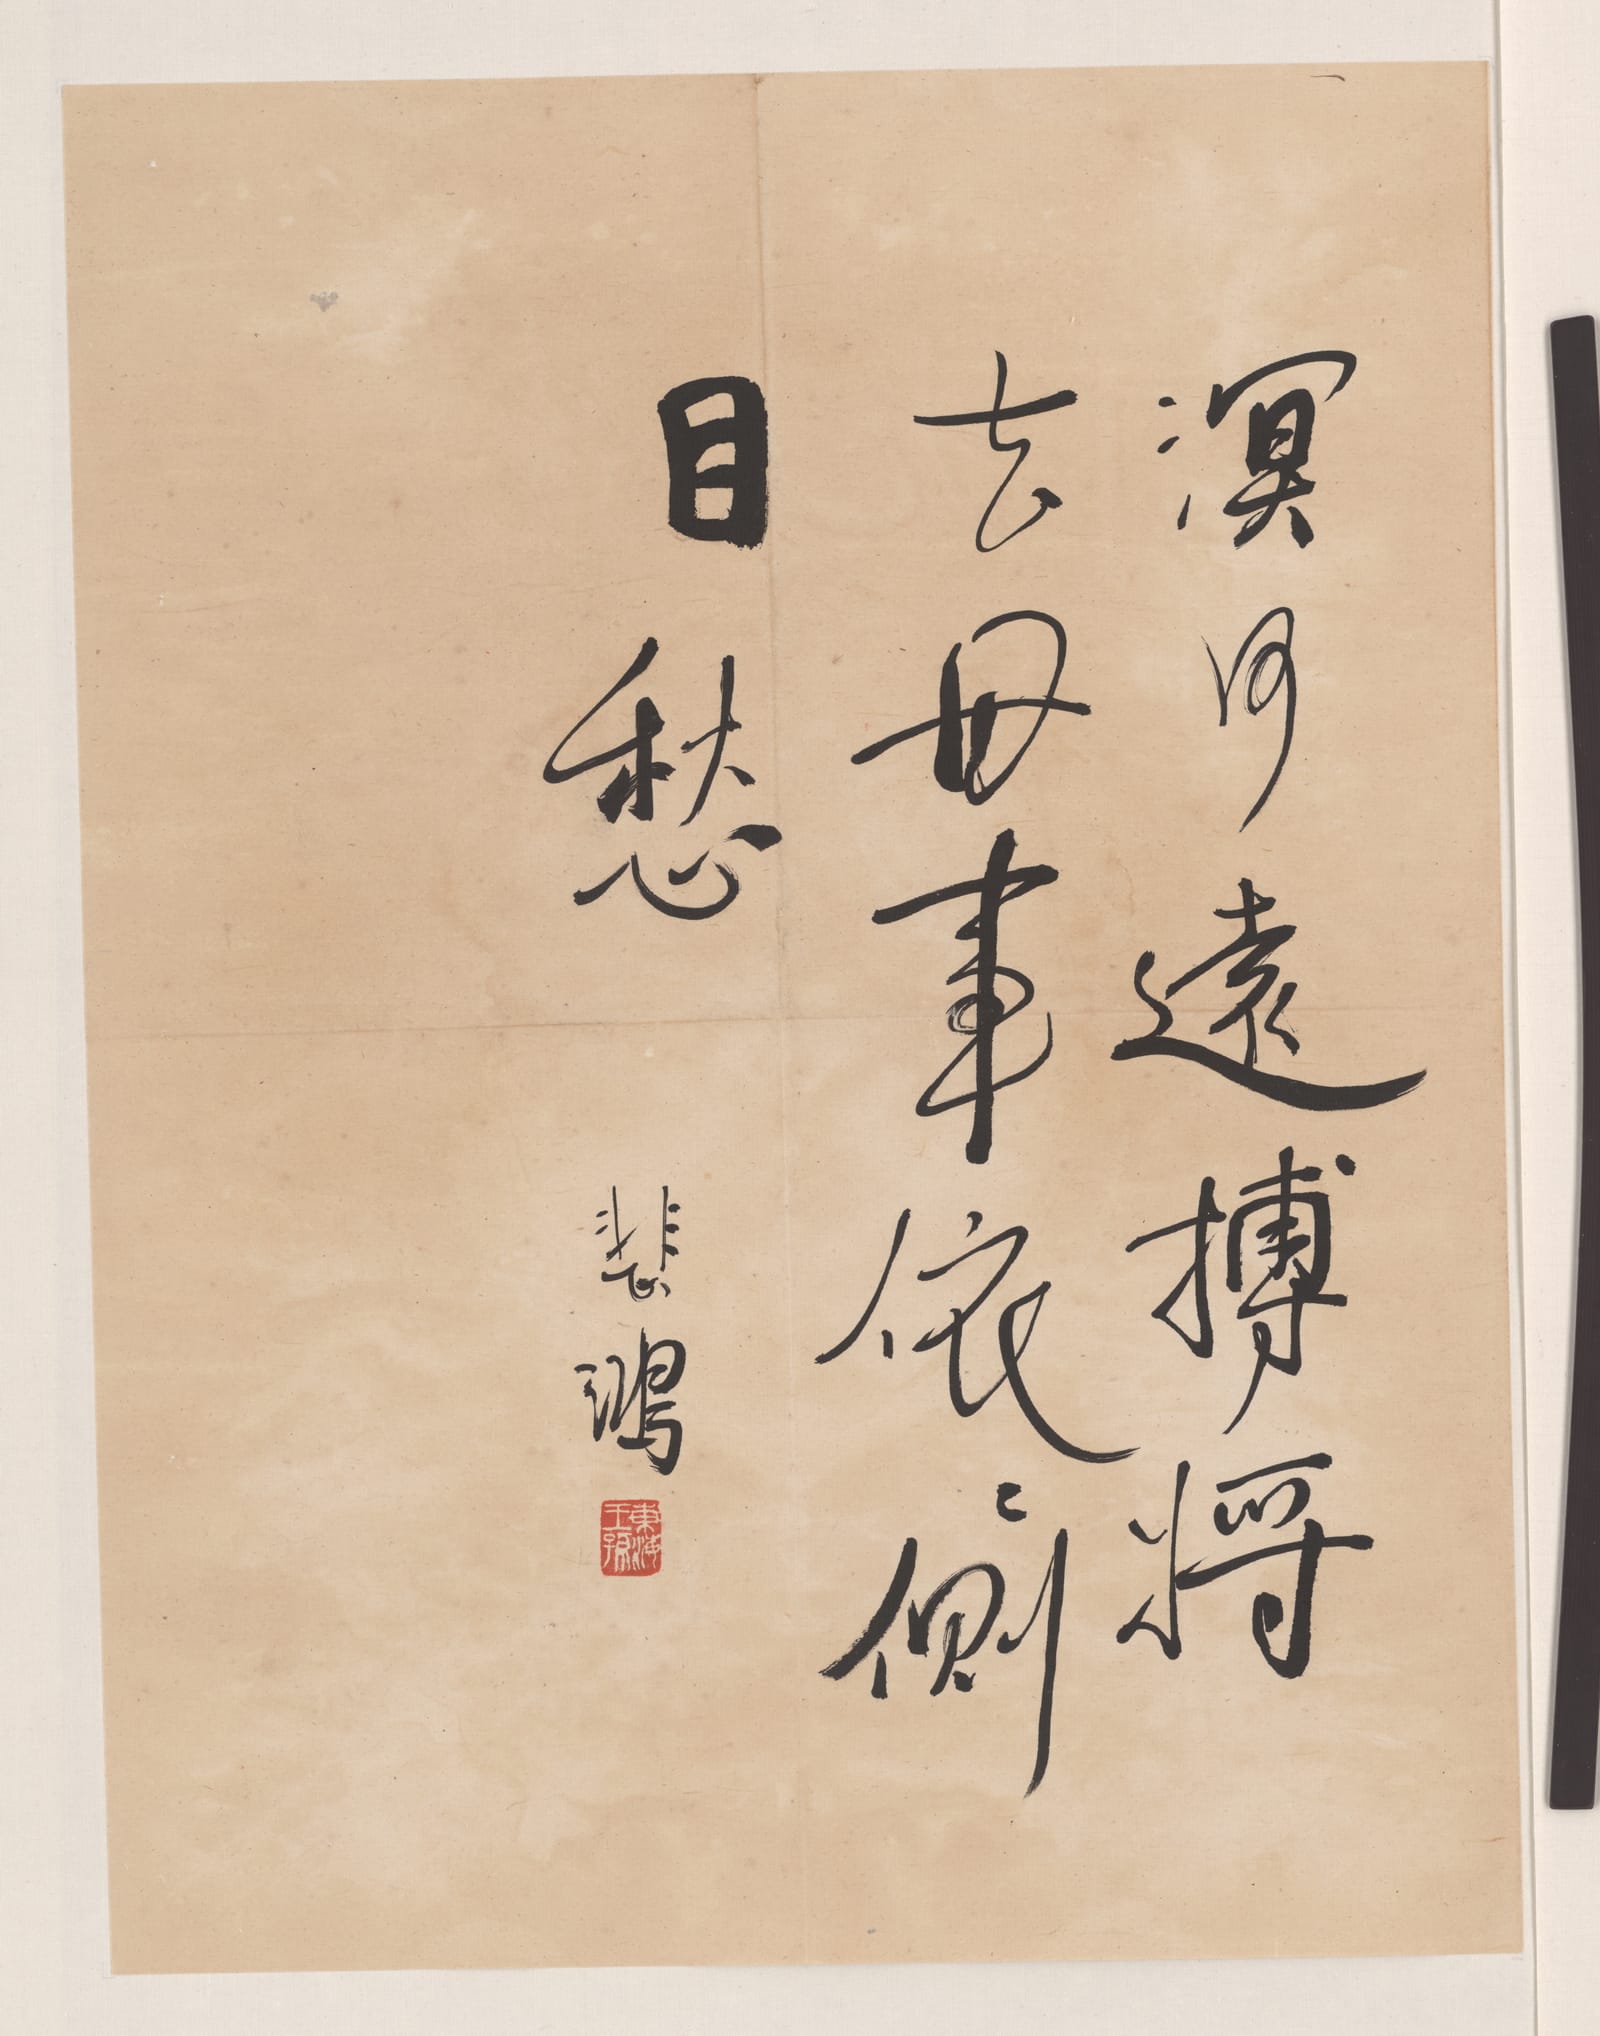 溟何遠搏將
去毋事依〻側
目愁
悲鴻
東海王孫